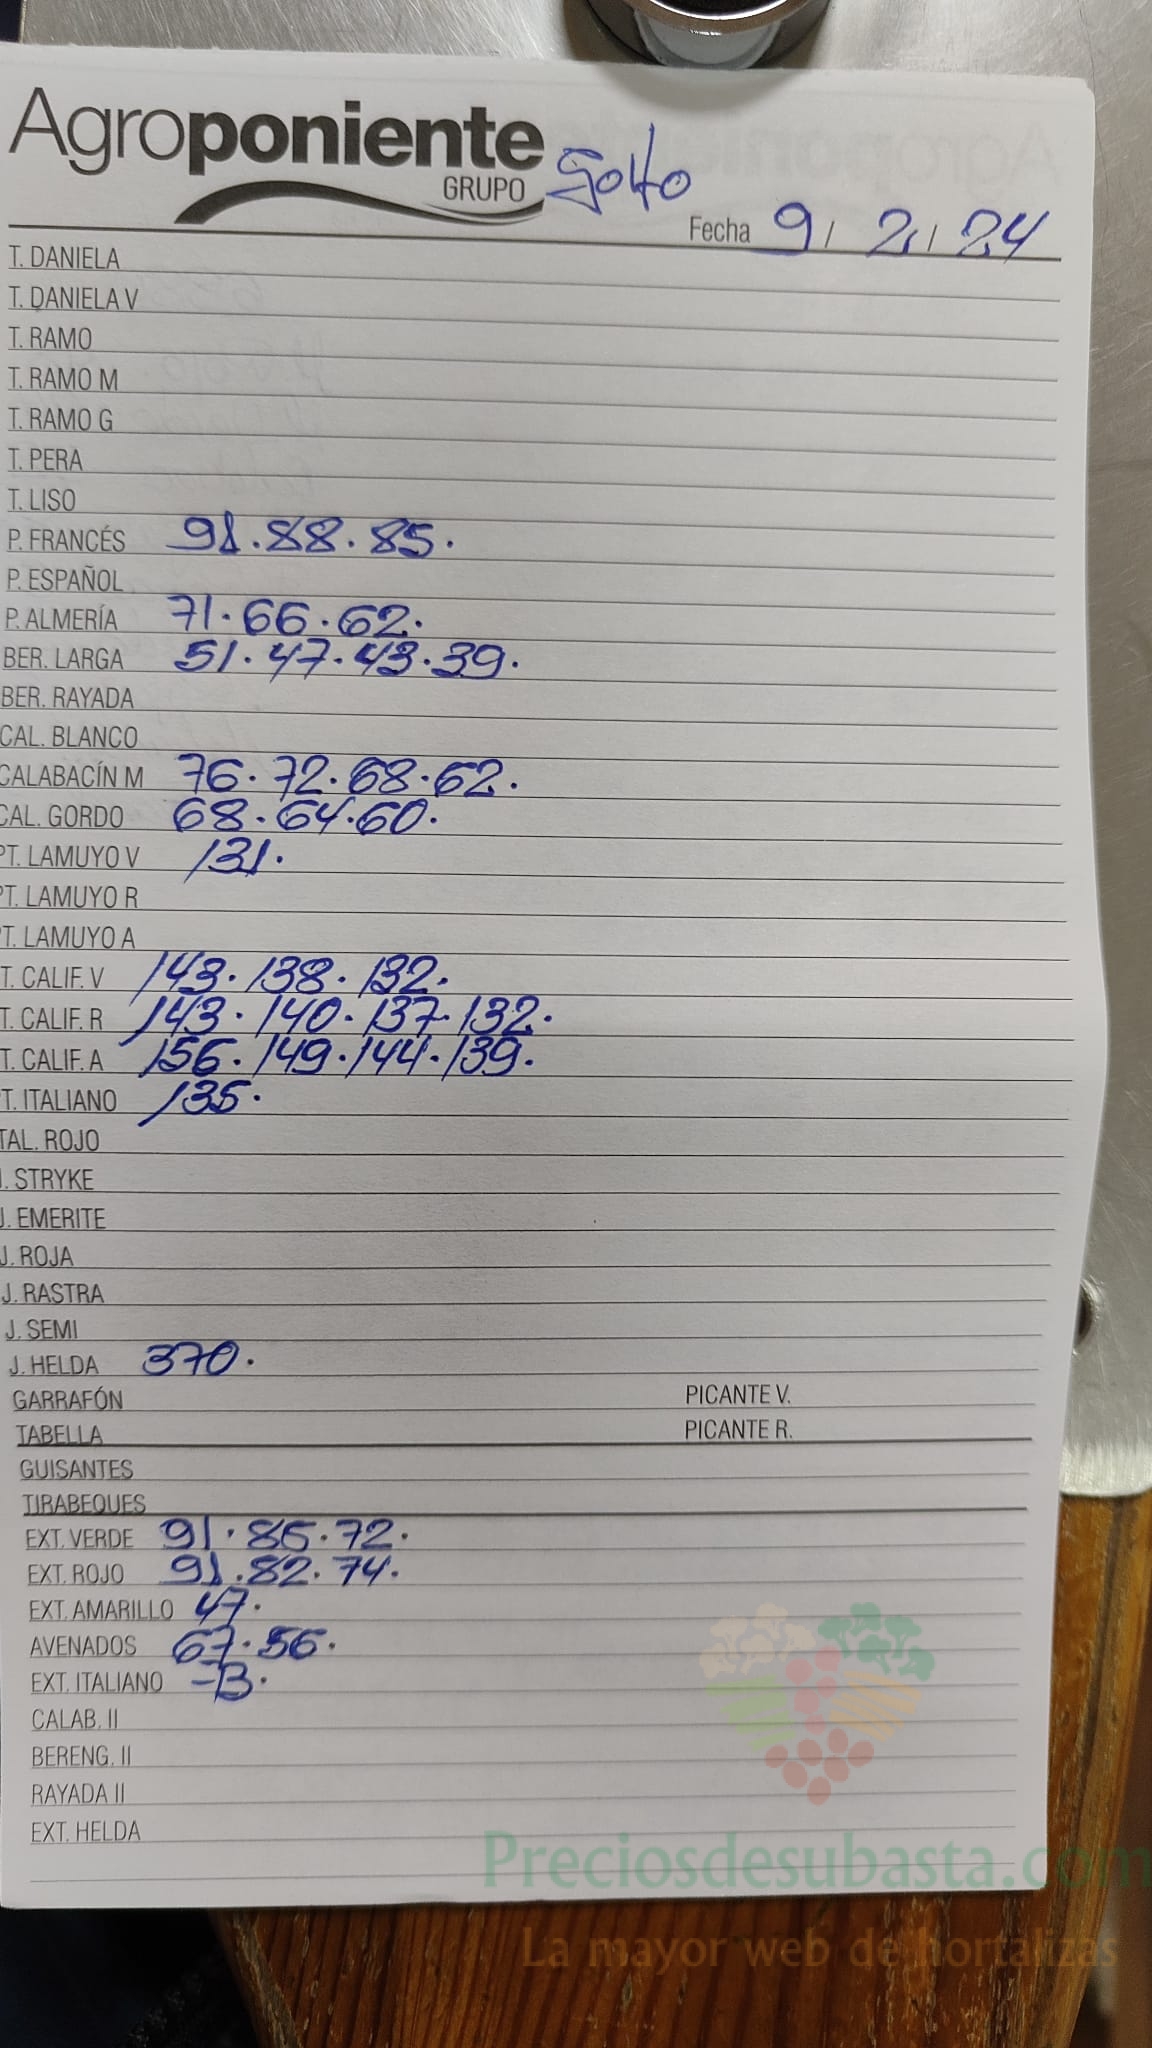 Agroponiente
GRUPO
Fecha 9 / 2 / 24
T. DANIELA
T. DANIELA V
T. RAMO
T. RAMO M
T. RAMO G
T. PERA
T. LISO
P. FRANCÉS 91.88.85.
P. ESPAÑOL
P. ALMERÍA 71.66.62.
BER. LARGA 51.47.43.39.
BER. RAYADA
CAL. BLANCO
CALABACÍN M 76.72.68.62.
CAL. GORDO 68.64.60.
PT. LAMUYO V 131.
PT. LAMUYO R
PT. LAMUYO A
T. CALIF. V 143.138.132.
T. CALIF. R 143.140.137.132.
T. CALIF. A 156.149.144.139.
PT. ITALIANO 135.
TAL. ROJO
J. STRYKE
J. EMERITE
J. ROJA
J. RASTRA
J. SEMI
J. HELDA 370.
GARRAFÓN PICANTE V.
TABELLA PICANTE R.
GUISANTES
TIRABEQUES
EXT. VERDE 91.86.72.
EXT. ROJO 91.82.74.
EXT. AMARILLO 47.
AVENADOS 67.56.
EXT. ITALIANO
CALAB. II
BERENG. II
RAYADA II
EXT. HELDA
Preciosdesubasta.com
La mayor web de hortalizas